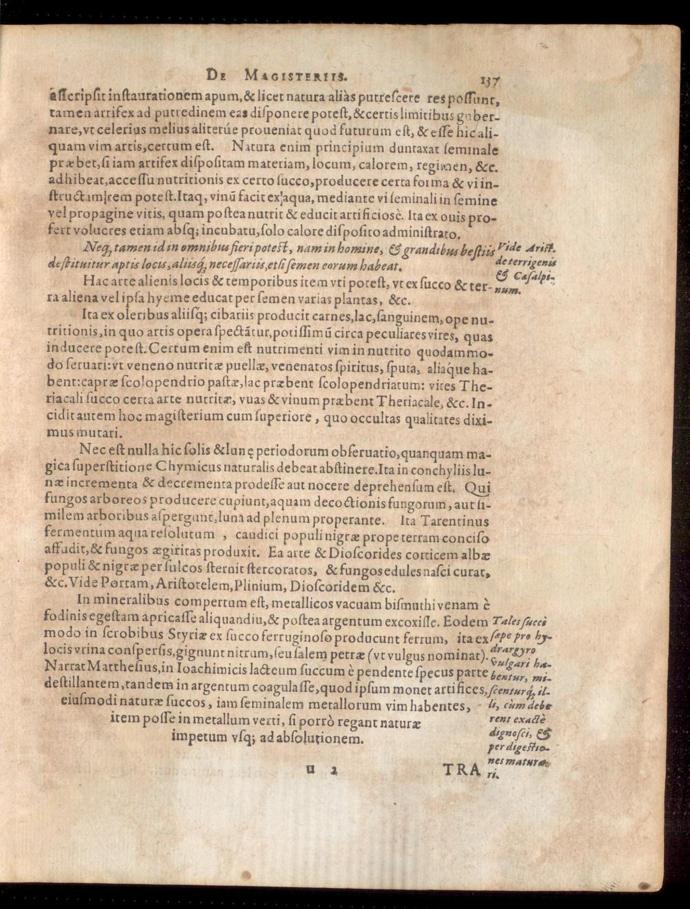 DE MAGISTERIIS. 137
ascripsit instaurationem apum, & licet natura aliàs putrescere res possunt,
tamen artifex ad putredinem eas disponere potest, & certis limitibus guber-
nare, vt celerius melius aliterúe proueniat quod futurum est, & esse hic ali-
quam vim artis, certum est. Natura enim principium duntaxat seminale
præbet, si iam artifex dispositam materiam, locum, calorem, regimen, &c.
adhibeat, accessu nutritionis ex certo succo, producere certa forma & vi in-
structam rem potest. Itaq, vinū facit ex aqua, mediante vi seminali in semine
vel propagine vitis, quam postea nutrit & educit artificiosè. Ita ex ouis pro-
fert volucres etiam absq; incubatu, solo calore disposito administrato.
Neq, tamen id in omnibus fieri potest, nam in homine, & grandibus bestiis
destituitur aptis locis, aliisq, necessariis, etsi semen eorum habeat.
Vide Arist.
de terrigenis
& Cæsalpi-
num.
Hac arte alienis locis & temporibus item vti potest, vt ex succo & ter-
ra aliena vel ipsa hyeme educat per semen varias plantas, &c.
Ita ex oleribus aliisq; cibariis producit carnes, lac, sanguinem, ope nu-
tritionis, in quo artis opera spectātur, potissimū circa peculiares vires, quas
inducere potest. Certum enim est nutrimenti vim in nutrito quodammo-
do seruari: vt veneno nutritæ puellæ, venenatos spiritus, sputa, aliaque ha-
bent: capræ scolopendrio pastæ, lac præbent scolopendriatum: vites The-
riacali succo certa arte nutritæ, vuas & vinum præbent Theriacale, &c. In-
cidit autem hoc magisterium cum superiore, quo occultas qualitates dixi-
mus mutari.
Nec est nulla hic solis & lunę periodorum obseruatio, quanquam ma-
gica superstitione Chymicus naturalis debeat abstinere. Ita in conchyliis lu-
næ incrementa & decrementa prodesse aut nocere deprehensum est. Qui
fungos arboreos producere cupiunt, aquam decoctionis fungorum, aut si-
milem arboribus aspergunt, luna ad plenum properante. Ita Tarentinus
fermentum aqua resolutum, caudici populi nigræ prope terram conciso
affudit, & fungos ægiritas produxit. Ea arte & Dioscorides corticem albæ
populi & nigræ per sulcos sternit stercoratos, & fungos edules nasci curat,
&c. Vide Portam, Aristotelem, Plinium, Dioscoridem &c.
In mineralibus compertum est, metallicos vacuam bismuthi venam è
fodinis egestam apricasse aliquandiu, & postea argentum excoxisse. Eodem
modo in scrobibus Styriæ ex succo ferruginoso producunt ferrum, ita ex
locis vrina conspersis, gignunt nitrum, seu salem petræ (vt vulgus nominat).
Narrat Matthesius, in Ioachimicis lacteum succum è pendente specus parte
destillantem, tandem in argentum coagulasse, quod ipsum monet artifices,
eiusmodi naturæ succos, iam seminalem metallorum vim habentes,
item posse in metallum verti, si porrò regant naturæ
impetum vsq; ad absolutionem.
Tales succi
sæpe pro hy-
drargyro
vulgari ha-
bentur, mi-
scenturq, il-
li, cùm debe
rent exactè
dignosci, &
per digestio-
nes matura-
ri.
u 2 TRA